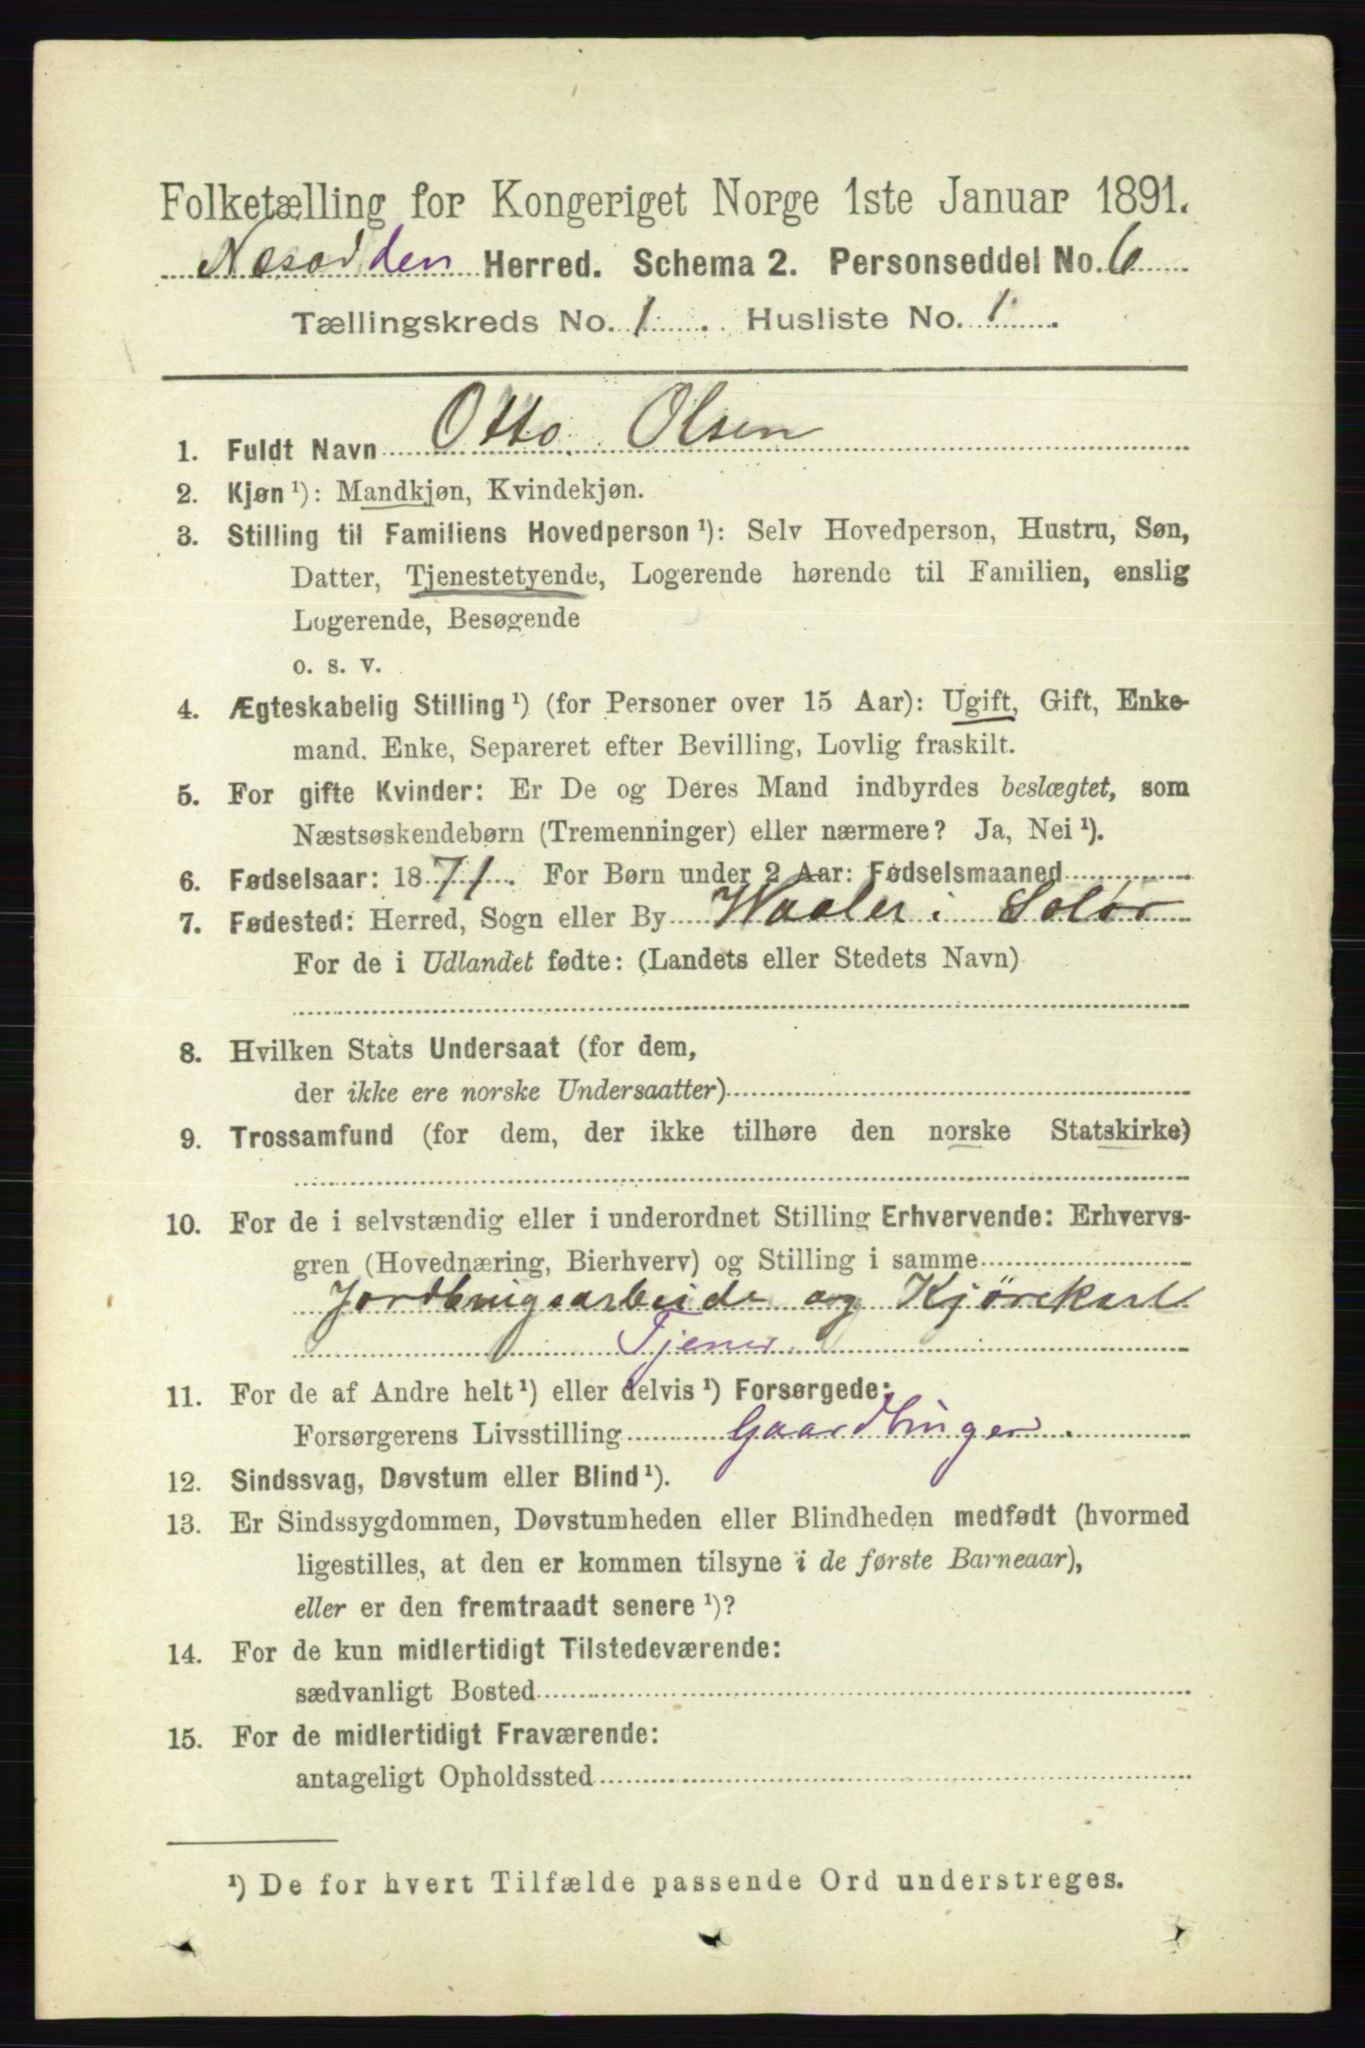 Folketælling for Kongeriget Norge 1ste Januar 1891.
Næsodden Herred. Schema 2. Personseddel No. 6
Tællingskreds No. 1. Husliste No. 1.
1. Fuldt Navn Otto Olsen
2. Kjøn ¹): Mandkjøn, Kvindekjøn.
3. Stilling til Familiens Hovedperson ¹): Selv Hovedperson, Hustru, Søn,
Datter, Tjenestetyende, Logerende hørende til Familien, enslig
Logerende, Besøgende
o. s. v.
4. Ægteskabelig Stilling ¹) (for Personer over 15 Aar): Ugift, Gift, Enke-
mand, Enke, Separeret efter Bevilling, Lovlig fraskilt.
5. For gifte Kvinder: Er De og Deres Mand indbyrdes beslægtet, som
Næstsøskendebørn (Tremenninger) eller nærmere? Ja, Nei ¹).
6. Fødselsaar: 1871. For Børn under 2 Aar: Fødselsmaaned
7. Fødested: Herred, Sogn eller By Waaler i Solør
For de i Udlandet fødte: (Landets eller Stedets Navn)
8. Hvilken Stats Undersaat (for dem,
der ikke ere norske Undersaatter)
9. Trossamfund (for dem, der ikke tilhøre den norske Statskirke)
10. For de i selvstændig eller i underordnet Stilling Erhvervende: Erhvervs-
gren (Hovednæring, Bierhverv) og Stilling i samme
Jordbrugsarbeide og Kjørekarl
Tjener
11. For de af Andre helt ¹) eller delvis ¹) Forsørgede:
Forsørgerens Livsstilling Gaardbruger.
12. Sindssvag, Døvstum eller Blind ¹).
13. Er Sindssygdommen, Døvstumheden eller Blindheden medfødt (hvormed
ligestilles, at den er kommen tilsyne i de første Barneaar),
eller er den fremtraadt senere ¹)?
14. For de kun midlertidigt Tilstedeværende:
sædvanligt Bosted
15. For de midlertidigt Fraværende:
antageligt Opholdssted
¹) De for hvert Tilfælde passende Ord understreges.